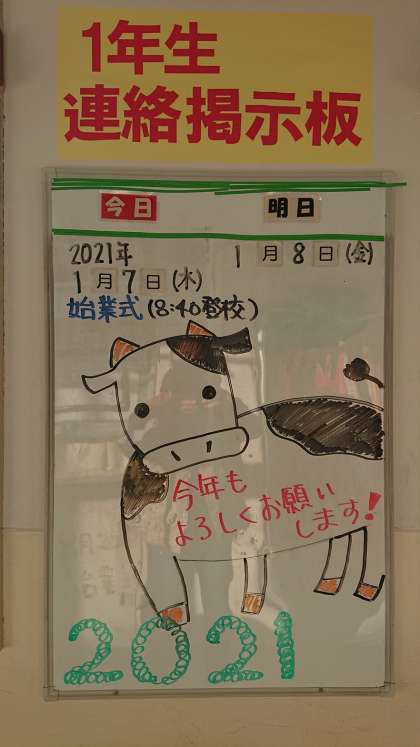 1年生
連絡掲示板
今日
明日
2021年
1月7日(木)
1月8日(金)
始業式(8:40登校)
今年も
よろしくお願い
します!
2021